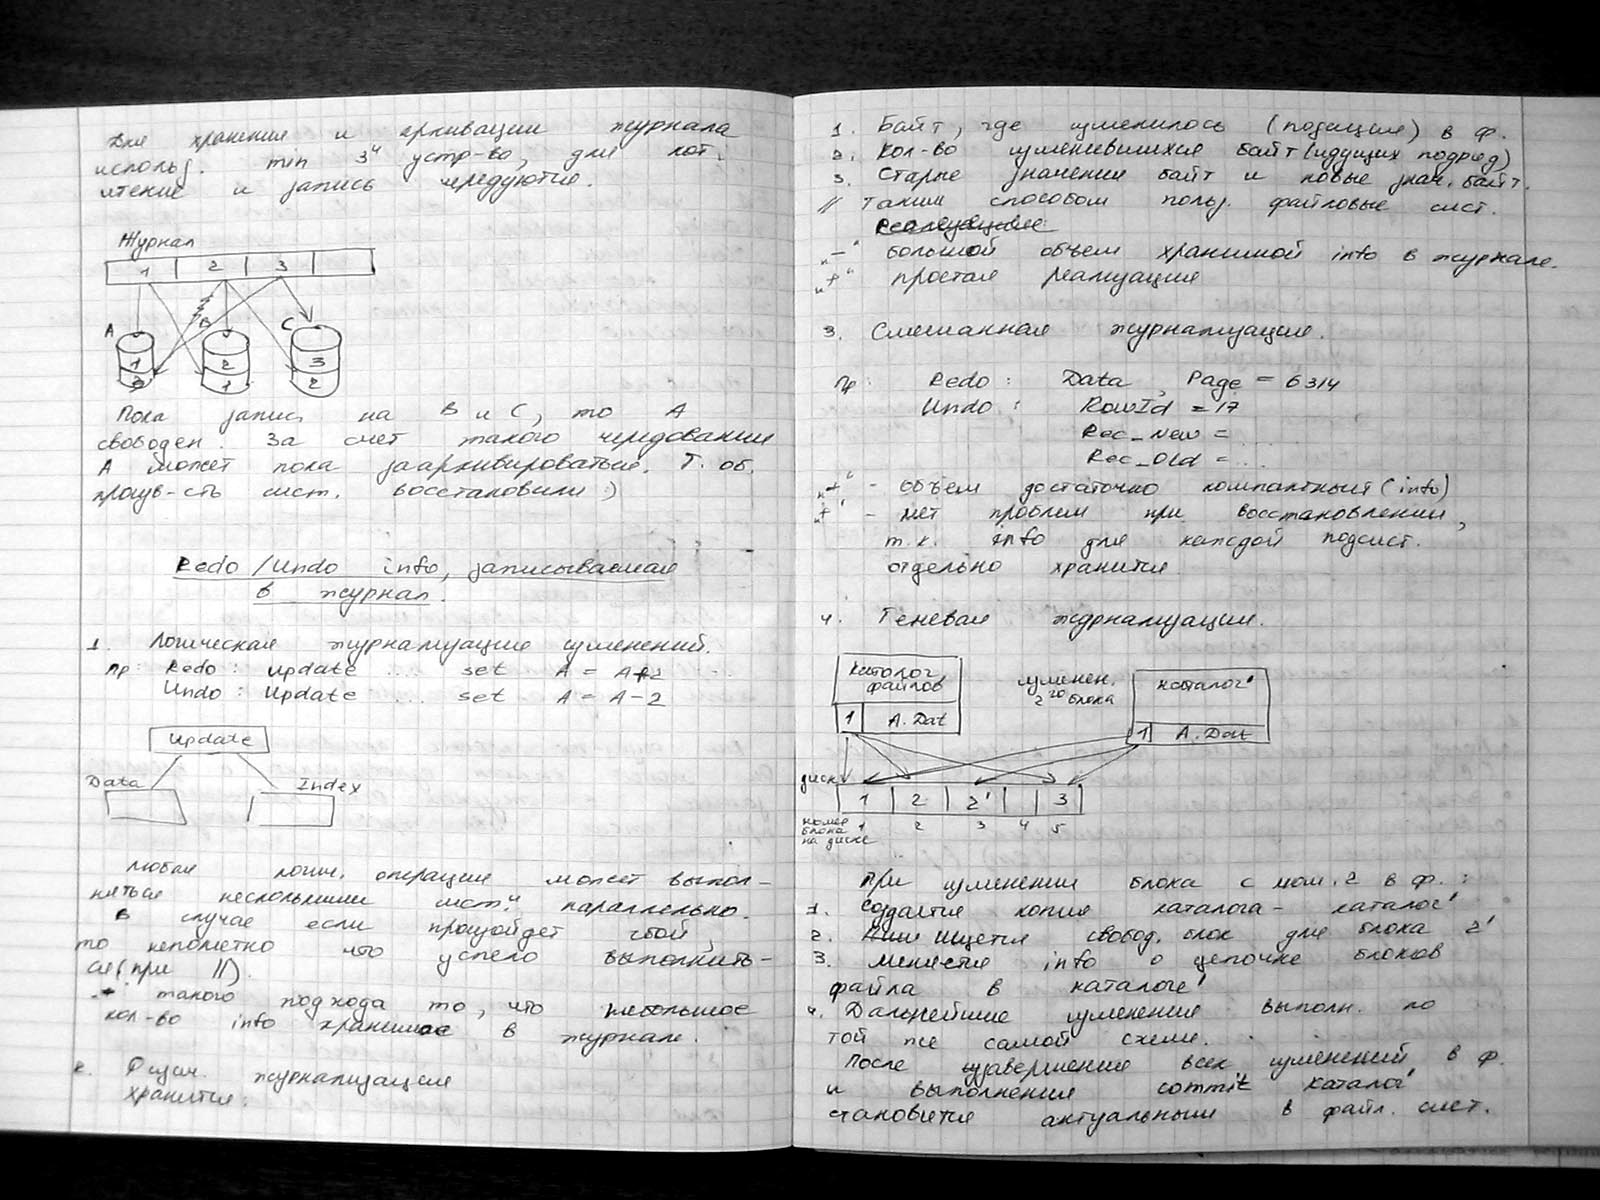 Для хранения и архивации журнала
использ. min 3и устр-во, для кот.
чтение и запись чередуются.
Журнал
1 2 3
A B C
1 2 3
3 1 2
Пока запись на B и C, то A
свободен. За счет такого чередования
A может пока заархивироваться. Т. об.
произв-сть сист. восстановили :)
Redo/Undo info, записываемая
в журнал.
1. Логическая журнализация изменений.
Пр: Redo: update ... set A = A+2 ...
Undo: Update ... set A = A-2
Update
Data Index
Любая логич. операция может выпол-
няться несколькими сист. параллельно.
В случае если произойдет сбой,
то непонятно что успело выполнить-
ся (при ||).
+ такого подхода то, что небольшое
кол-во info хранимое в журнале.
2. Физич. журнализация
хранится:
1. Байт, где изменилось (позиция) в ф.
2. Кол-во изменившихся байт (идущих подряд)
3. Старые значения байт и новые знач. байт.
// Таким способом польз. файловые сист.
"-" большой объем хранимой info в журнале.
"+" простая реализация
3. Смешанная журнализация.
Пр: Redo: Data, Page = 6314
Undo: RowId = 17
Rec_New = ...
Rec_Old = ...
"+" - объем достаточно компактный (info)
"+" - нет проблем при восстановлении,
т.к. info для каждой подсист.
отдельно хранится
4. Теневая журнализация.
каталог
файлов
1 A.Dat
изменен.
2го блока
каталог'
1 A.Dat
диск
1 2 2' 3
номер
блока
на диске
1 2 3 4 5
При изменении блока с ном. 2 в ф.:
1. Создается копия каталога - каталог'
2. Ищется свобод. блок для блока 2'
3. Меняется info о цепочке блоков
файла в каталоге'
4. Дальнейшие изменения выполн. по
той же самой схеме.
После завершения всех изменений в ф.
и выполнения commit каталог'
становится актуальным в файл. сист.